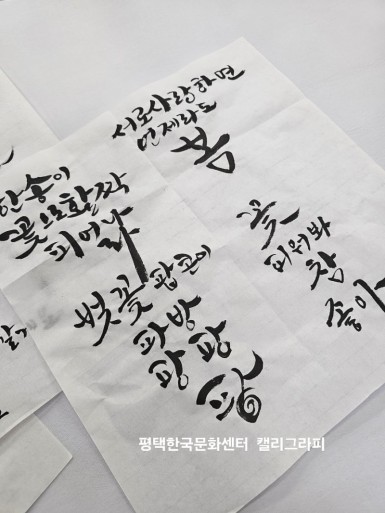 서로사랑하면
언제라도
봄
한송이
꽃으로활짝
피어나
벚꽃 팝콘이
파방
팡팡
팡
꽃
피워봐
참
좋아
평택한국문화센터 캘리그라피